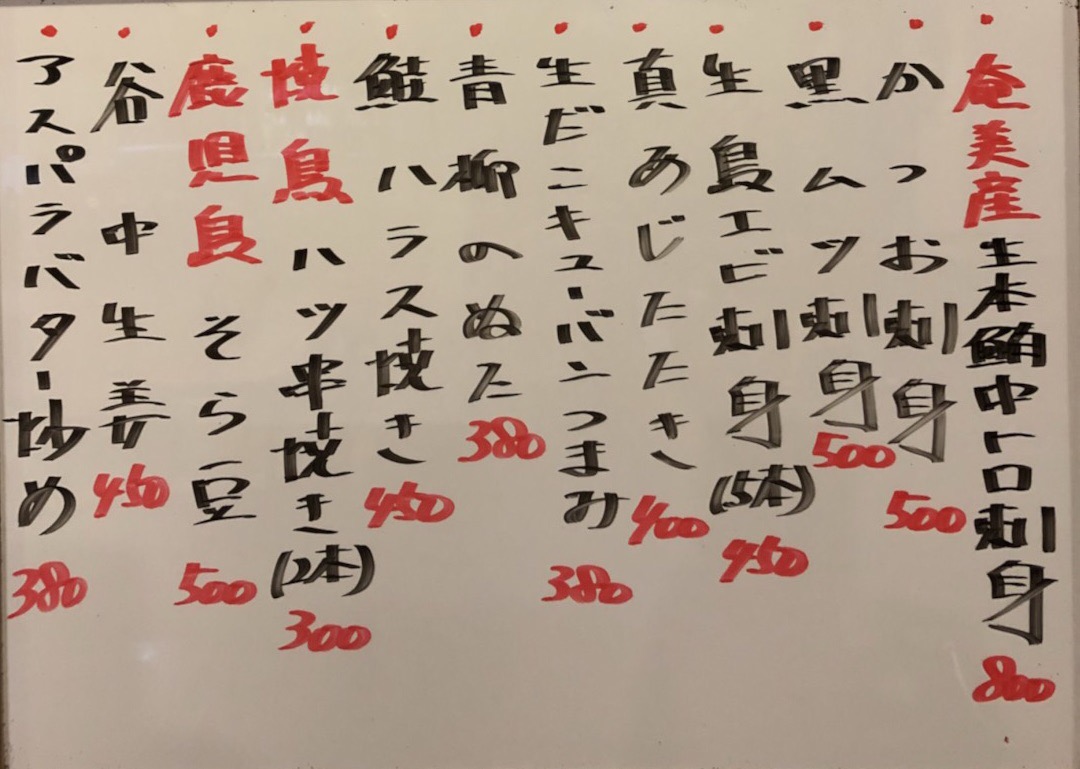 ・奄美産生本鮪中トロ刺身 800
・かつお刺身 500
・黒ムツ刺身 500
・生島エビ刺身(5本) 450
・真あじたたき 400
・生だこキューバンつまみ 380
・青柳のぬた 380
・鮭ハラス焼き 450
・焼鳥ハツ串焼き(2本) 300
・鹿児島そら豆 500
・谷中生姜 450
・アスパラバター炒め 380